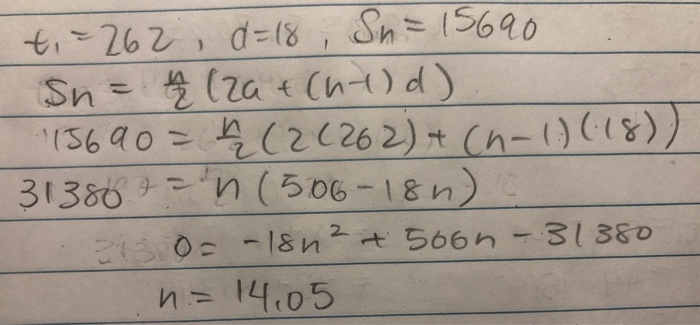 t₁ = 262, d=18, Sn = 15690
Sn = n/2 (2a + (n-1)d)
15690 = n/2 (2(262) + (n-1)(18))
31380 = n(506-18n)
0 = -18n² + 506n - 31380
n = 14.05